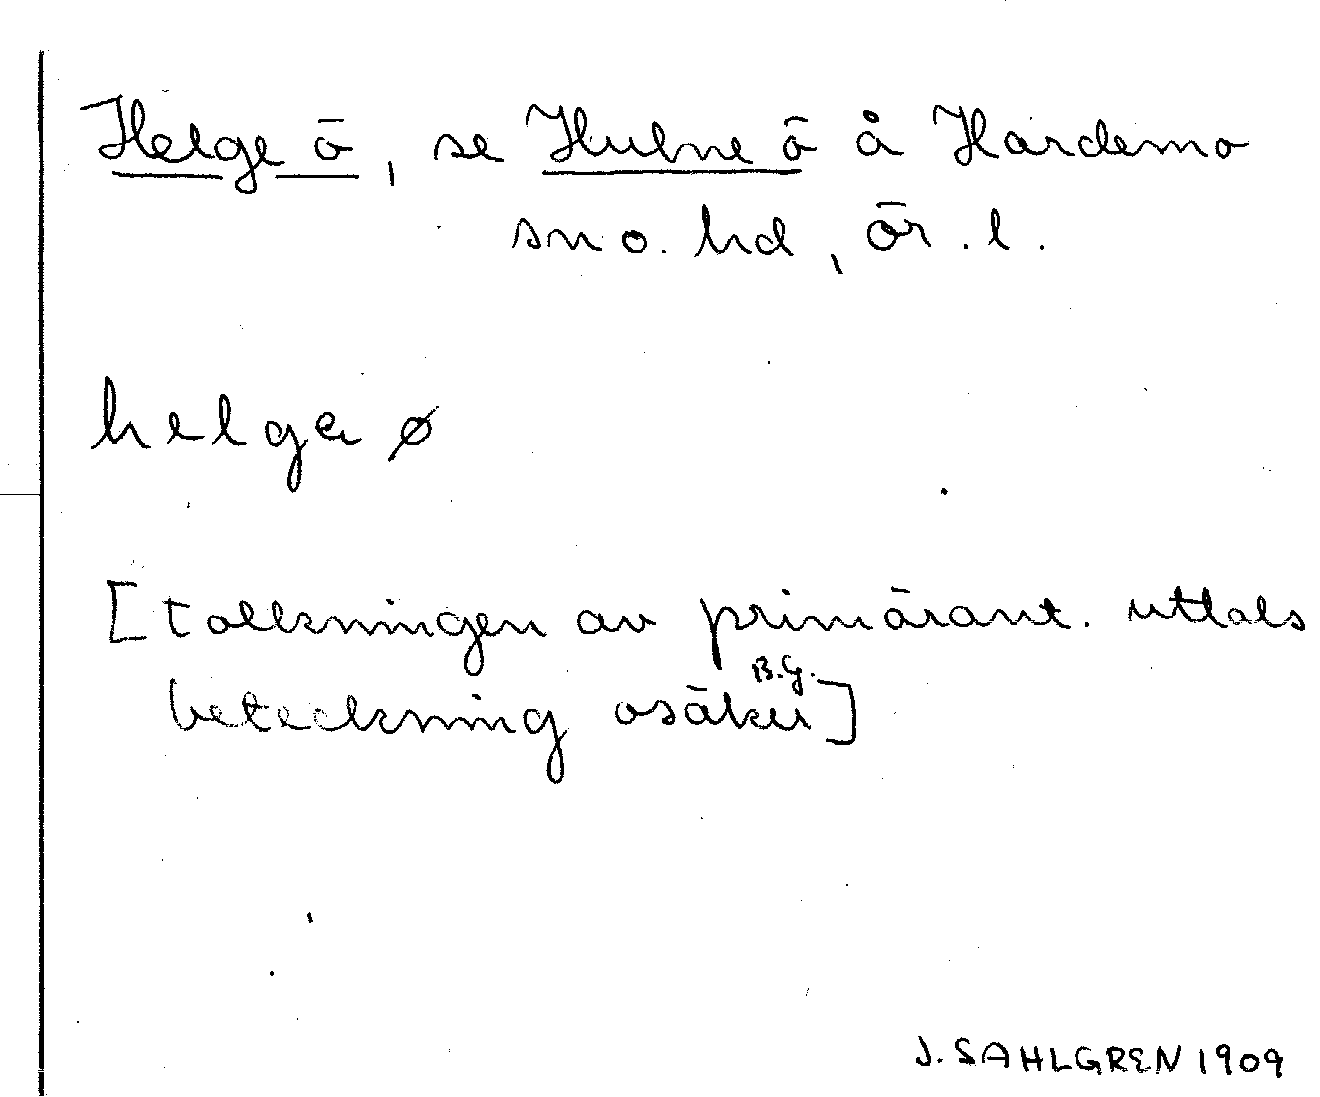 Helge ö, se Hulne ö å Hardemo
sn o. hd, ör. l.
helga ø
[tolkningen av primärant. uttals
beteckning osäker B.G.]
J. SAHLGREN 1909